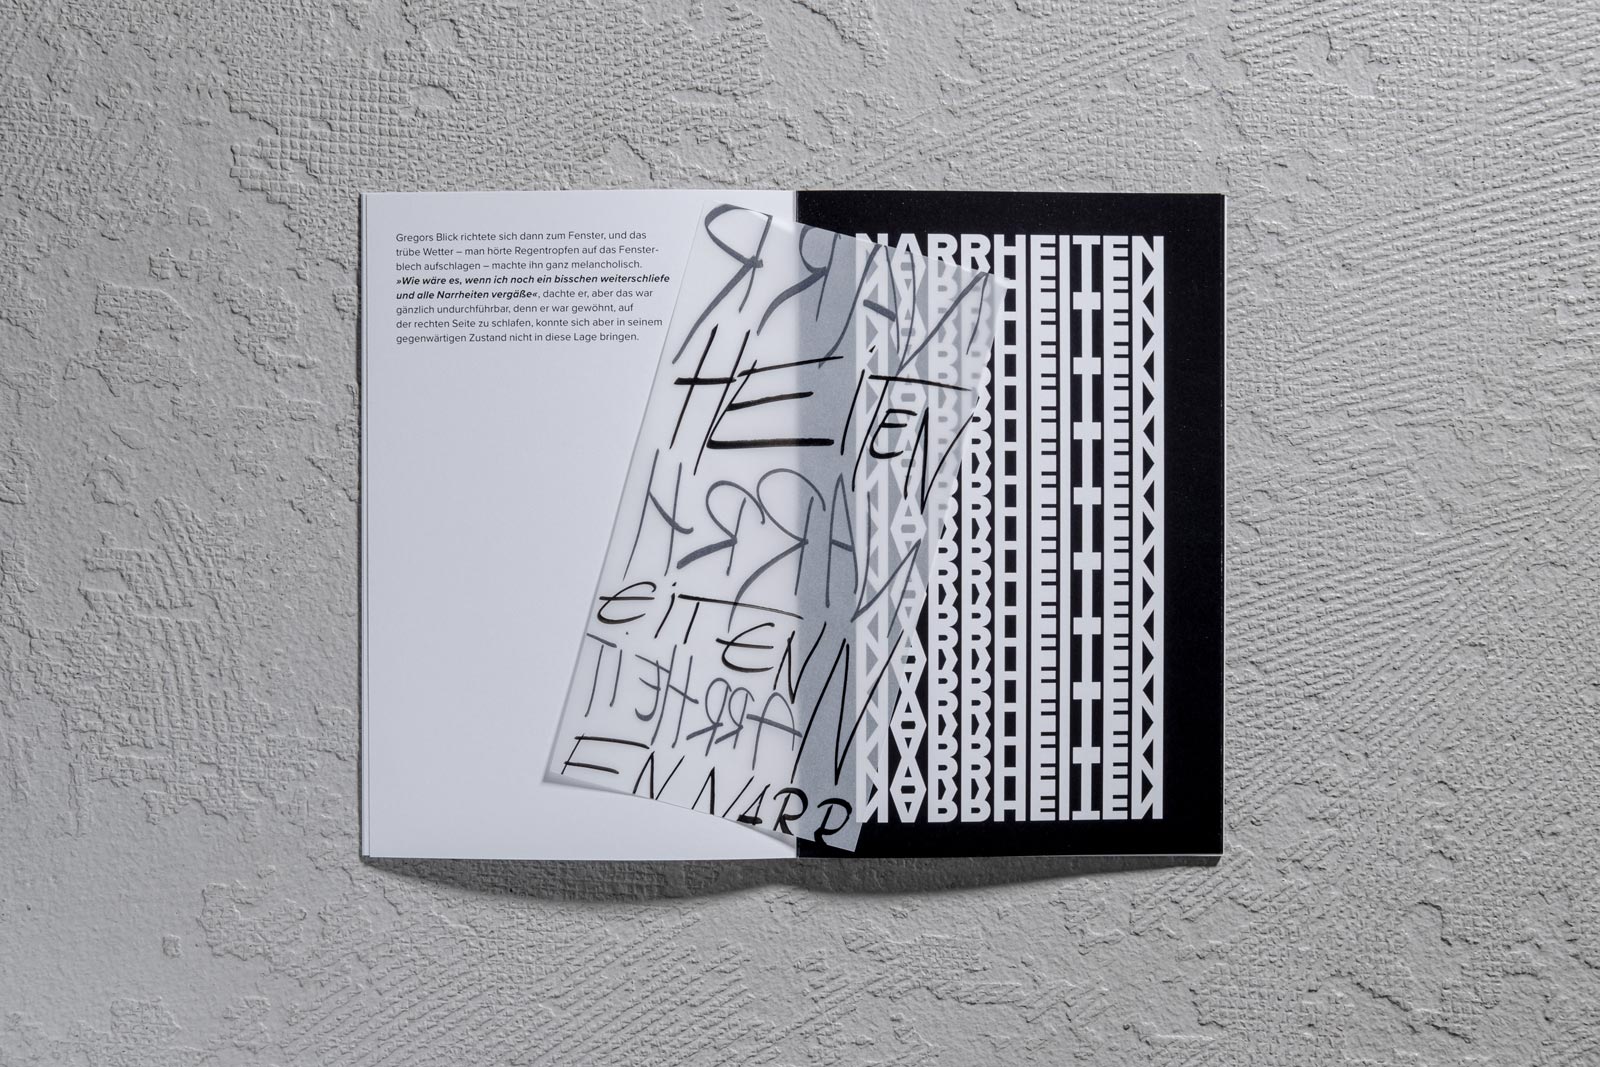 Gregors Blick richtete sich dann zum Fenster, und das
trübe Wetter – man hörte Regentropfen auf das Fenster-
blech aufschlagen – machte ihn ganz melancholisch.
»Wie wäre es, wenn ich noch ein bisschen weiterschliefe
und alle Narrheiten vergäße«, dachte er, aber das war
gänzlich undurchführbar, denn er war gewöhnt, auf
der rechten Seite zu schlafen, konnte sich aber in seinem
gegenwärtigen Zustand nicht in diese Lage bringen.
NARR
HEITEN
NARRH
EITEN N
ARRHEIT
EN NARR
NARRHEITEN